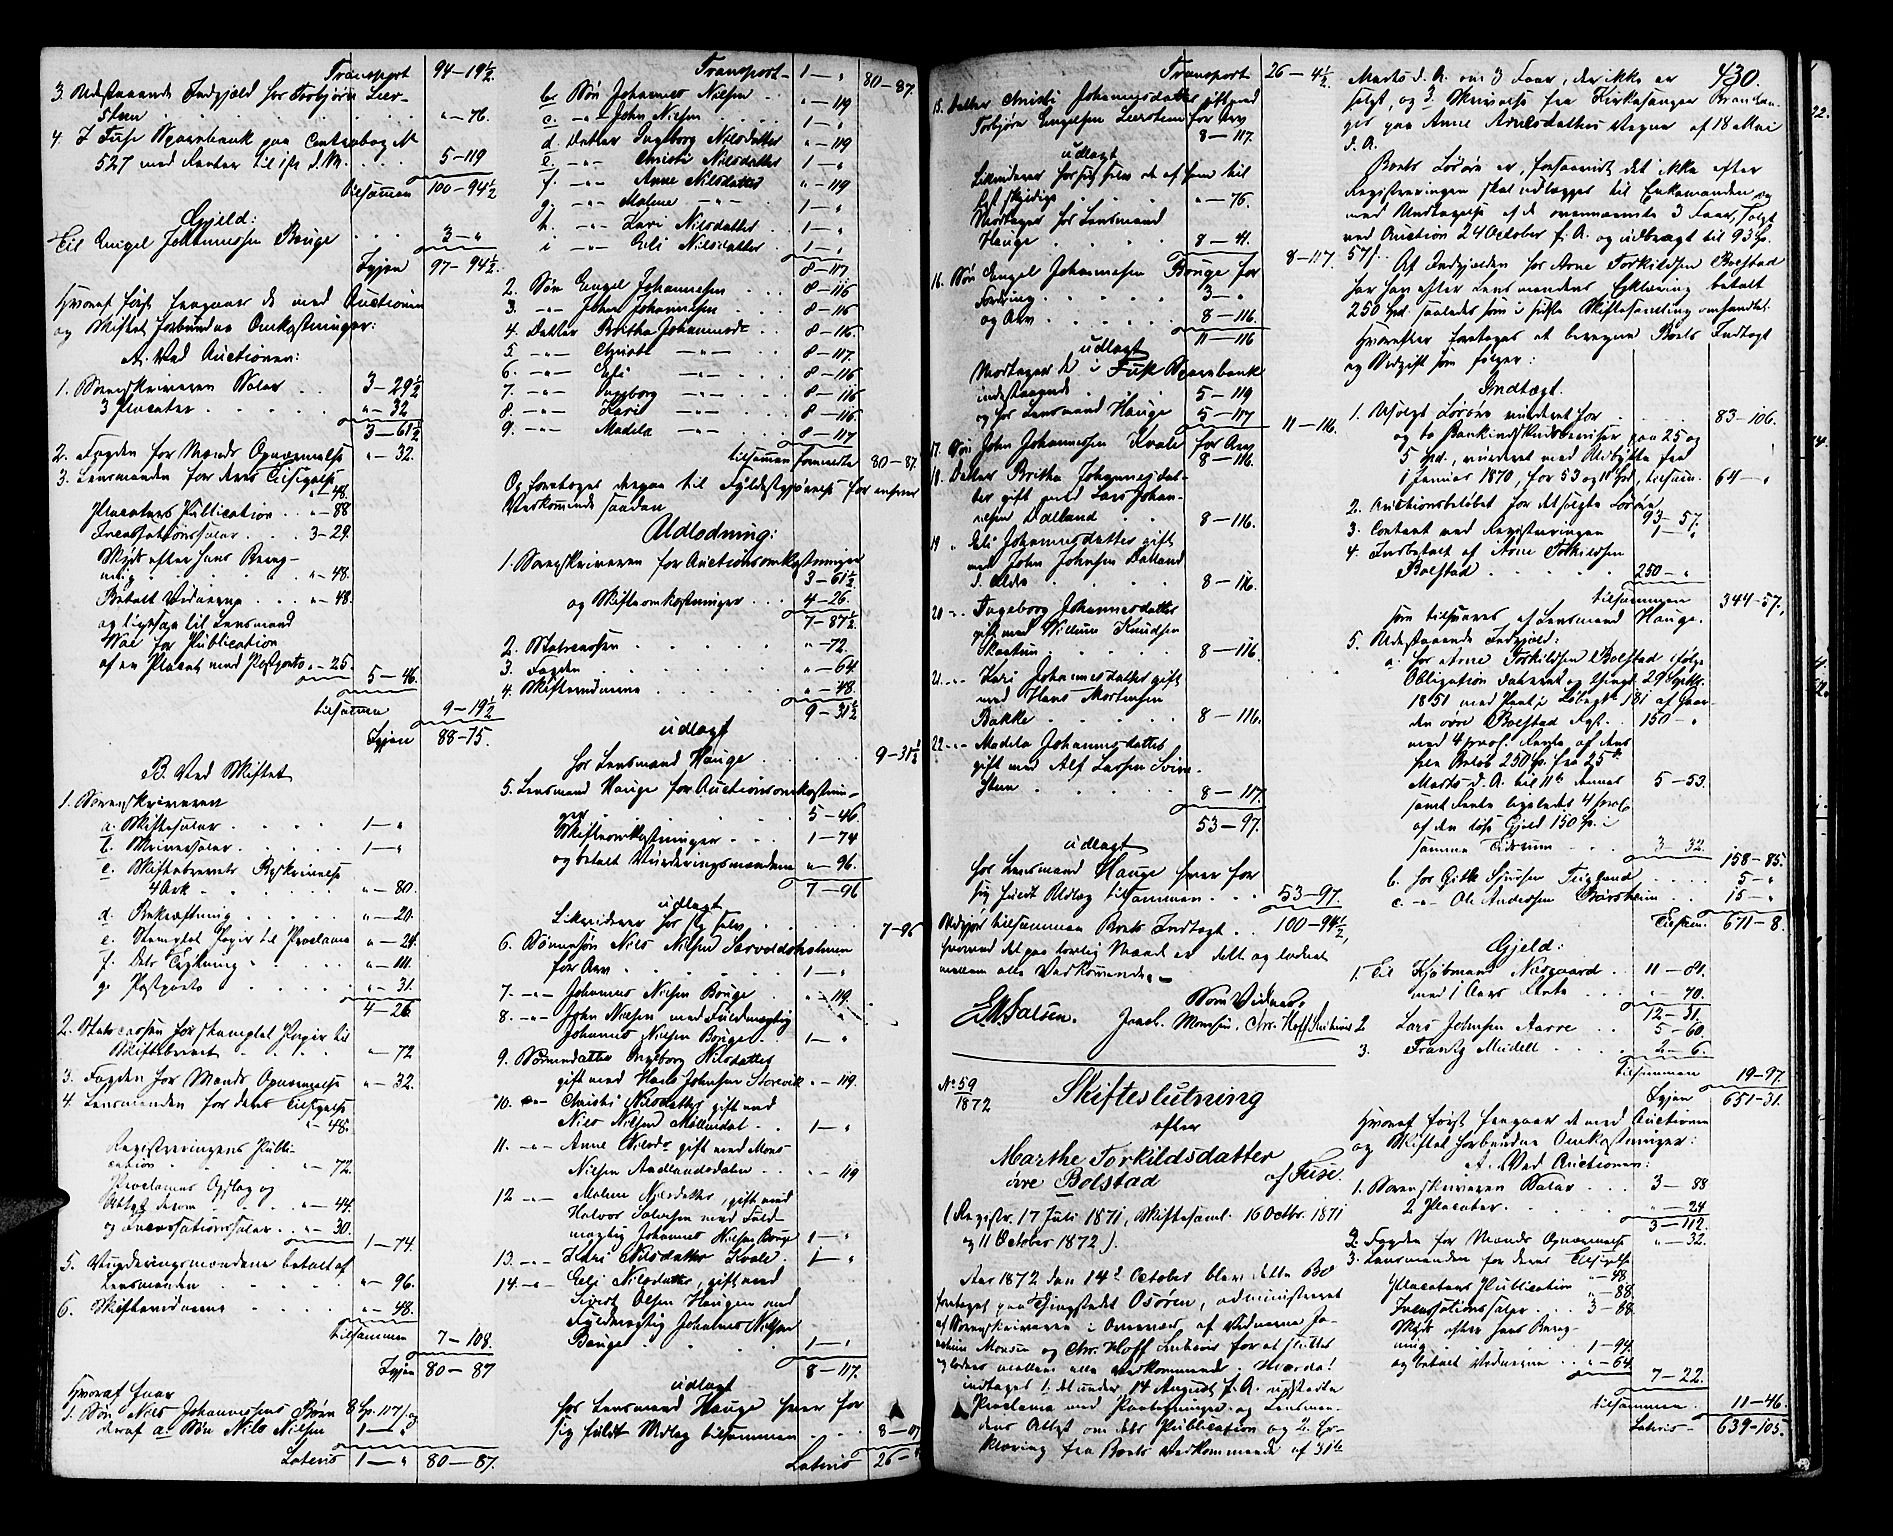 Transport 94-19½
3. Udestaaende Indgjæld hos Torbjørn Lier-
sten . . . . "-76.
4. I Fuse Sparebank paa Contrabog №
527 med Renter til 1ste d.M. . . 5-119
tilsammen 100-94½
Gjeld:
Til Engel Johannessen Bouge . . . 3-"
Igjen 97-94½
Hvoraf først fragaaer de med Auctionen
og Skiftet forbundne Omkostninger:
A. Ved Auctionen:
1. Sorenskriveren Salær . . 3-29½
3 Placater . . . . "-32
3-61½
2. Fogden for Mands Opnævnelse "-32.
3. Lensmanden for deres Tilsigelse
"-48.
Placatens Publication . . "-88
Incassationssalær . . . 3-29.
"-48.
Betalt Vidnerne . . . "-48.
og ligesaa til Lensmand
Næs for Publication
af en Placat med Postporto "-25.
5-46.
tilsammen 9-19½
Igjen 88-75.
B. Ved Skiftet
1. Sorenskriveren
a. Skiftesalær . . . . 1-"
b. Skriversalær . . . . 1-"
c. Skiftebrevets Beskrivelse
4 Ark . . . . "-80.
d. Bekræftning . . . . "-20.
e. Stemplet Papir til Proclama "-24.
f. Dets Tegning . . . "-111.
g. Postporto . . . "-31.
4-26
2. Statscassen for stemplet Papir til
Skiftebrevet . . . "-72
3. Fogden for Mands Opnævnelse "-32.
4. Lensmanden for deres Tilsigelse
"-48.
Registreringens Publi-
cation . . . "-72.
Proclamas Opslag og
Attest derom . . . "-44.
og Incassationssalær . . "-30.
1-74.
5. Vurderingsmændene betalt af
Lensmanden . . . "-96.
6. Skiftevidnerne . . . "-48.
tilsammen 7-108.
Igjen 80-87
Hvoraf faar
1. Søn Nils Johannessens Børn 8 Sp. 117/ og
deraf a. Søn Nils Nilsen 1-"
Lateris 1-" 80-87.
Transport 1-" 80-87.
b. Søn Johannes Nilsen . . "-119
c. -"- John Nilsen . . . 1-"
d. Datter Ingeborg Nilsdatter "-119
e. -"- Christi Nilsdatter 1-"
f. -"- Anne Nilsdatter "-119
g. -"- Malene -"- . . 1-"
h. -"- Kari Nilsdatter . . 1-"
i -"- Eli Nilsdatter . . 1-"
8-117
2. Søn Engel Johannesen . . 8-116
3. -"- John Johannesen . . 8-116
4. Datter Britha Johannesdr . . 8-116.
5. -"- Christi -"- . . 8-117.
6. -"- Eli -"- . . 8-116
7. -"- Ingeborg -"- . . 8-116
8. -"- Kari -"- . . 8-116.
9. -"- Madela -"- . . 8-117
tilsammen formeldte 80-87.
Og foretoges derpaa til Fyldestgjørelse for enhver
Vedkommende saadan
Udlodning:
1. Sorenskriveren for Auctionsomkostninger
3-61½
og Skifteomkostninger . . 4-26.
7-87½
2. Statscassen . . . . "-72.
3. Fogden . . . . "-64.
4. Skiftevidnerne . . . . "-48.
9-31½
udlagt
hos Lensmand Hauge . . . 9-31½
5. Lensmand Hauge for Auctionsomkostnin-
ger . . . . 5-46.
Skifteomkostninger . . . 1-74
og betalt Vurderingsmændene "-96.
7-96
udlagt
Likviderer hos sig selv . . . 7-96
6. Sønnesøn Nils Nilsen Sævoldsholmen
for Arv . . . . 1-"
7. -"- Johannes Nilsen Bouge . . "-119.
8. -"- John Nilsen med Fuldmægtig
Johannes Nilsen Bouge . . 1-"
9. Sønnedatter Ingeborg Nilsdatter
gift med Hans Johnsen Storevik "-119.
10. -"- Christi Nilsdatter, gift med
Nils Nilsen Møllerdal . . 1-"
11. -"- Anne Nilsdr gift med Mons
Nilsen Andlandsdalen . . "-119
12 -"- Malene Nilsdatter, gift med
Halvor Salvesen med Fuld-
mægtig Johannes Nilsen Bouge 1-"
13. -"- Kari Nilsdatter Kvale . 1-"
14. -"- Eli Nilsdatter, gift med
Sivert Olsen Haugen med
Fuldmægtig Johannes Nilsen
Bouge . . . . 1-"
8-117.
udlagt
hos Lensmand Hauge hver for
sig fuldt Udlæg tilsammen . . 8-117
Lateris 26-4½
Transport 26-4½
15. Datter Christi Johannesdatter gift med
Torbjørn Engelsen Liersten for Arv
8-117.
udlagt
Likviderer hos sig selv de af ham til
Boet skyldige . . . "-76.
Modtager hos Lensmand
Hauge . . . 8-41. 8-117.
16. Søn Engel Johannesen Bouge for
Fordring . . . 3-"
og Arv . . . 8-116.
11-116
udlagt
Modtager de i Fuse Sparebank
indestaaende . . . 5-119
og hos Lensmand Hauge 5-117 11-116.
17. Søn John Johannessen Kvale for Arv
8-116.
18. Datter Britha Johannesdat-
ter gift med Lars Johan-
nesen Dalland . . 8-116.
19 " Eli Johannesdatter gift
med John Johnsen Dalland
. . . 8-116.
20 -"- Ingeborg Johannesdatter
gift med Villum Knudsen
Skaatun . . . 8-116.
21. -"- Kari Johannesdatter gift
med Hans Mortensen
Bakke . . . 8-116.
22. -"- Madela Johannesdatter
gift med Alf Larsen Svin-
. . . 8-117.
53-97.
udlagt
hos Lensmand Hauge hver for
sig fuldt Udlæg tilsammen . . 53-97.
Udgjør tilsammen Boets Indtægt . . 100-94½,
hvorved det paa lovlig Maade er delt og lodnet
mellem alle Vedkommende. -
Som Vidner,
E. M. Falsen. Joach. Monsen. Chr. Hoff Lertusius
№ 59
1872
Skifteslutning
efter
Marthe Torkildsdatter
øvre Bolstad af Fuse.
(Registr. 17 Juli 1871, Skiftesaml. 16 Octbr. 1871
og 11 October 1872).
Aar 1872 den 14de October blev dette Bo
foretaget paa Thingstedet Osøren, administreret
af Sorenskriveren i Overvær af Vidnerne Jo-
achim Monsen og Chr. Hoff for at sluttes
og loddes mellem alle Vedkommende. Hvorda!
indtoges 1. det under 14 August f. A. udstædte
Proclama med Paategninger og Lensman-
dens Attest om dets Publication og 2. Er-
klæring fra Boets Vedkommende af 31te
430.
Marts d. A. om 3 Faar, der ikke er
solgt, og 3. Skrivelse fra Kirkesanger Brandan-
ger paa Anne Arnesdatters Vegne af 18 Mai
d. A.
Boets Løsøre er, forsaavidt det ikke efter
Registreringen skal udlægges til Enkemanden og
med Undtagelse af de ovennævnte 3 Faar, solgt
ved Auction 24 October f. A. og udbragt til 93 Sp.
57/.
Af Indgjælden hos Arne Torkildsen Bolstad
har han efter Lensmandens Erklæring betalt
250 Spd. saaledes som i sidste Skiftesamling omhandlet.
Hvorefter foretoges at beregne Boets Indtægt
og Udgift som følger:
Indtægt.
1. Usolgt Løsøre vurderet for . . 83-106.
og to Bankindskudsbeviser paa 25 og
5 Spd., vurderet med Udbytte fra
1 Januar 1870, for 53 og 11 Spd., tilsam. 64-"
2. Auctionsbeløbet for det solgte Løsøre
93-57.
3. Contant ved Registreringen 1-"
4. Indbetalt af Arne Torkildsen
Bolstad . . . . 250-"
tilsammen 344-57.,
som tilsvares af Lensmand Hauge.
5. Udestaaende Indgjæld:
a. hos Arne Torkildsen Bolstad ifølge
Obligation dateret og thingl. 29 Septbr.
1851 med Pant i Løbenr 181 af Gaar-
den øvre Bolstad Rest . . 150-"
med 4 proc. Rente af den
fra Beløb 250 Sp. fra 25de
Marts d. A. til 11te dennes 5-53.
samt Rente ligeledes 4 proC
af den løse Gjeld 150 Sp. i
samme Tidsrum . . 3-32.
158-85.
b. hos Gitle Sjursen Teigland . . 5-"
c. -"- Ole Andersen Baarsheim . . 15-"
Tilsam. 671-8.
Gjeld:
1. Til Kjøbmand Nesgaard . . 11-81.
med 1 Aars Rente . . . "-70.
12-31.
2 Lars Johnsen Aarre . . 5-60.
3. Frantz Meidell . . . 2-6.
tilsammen 19-97.
Igjen 651-31.
Hvoraf først fragaaer de med Auctionen
og Skiftet forbundne Omkostninger:
A. Ved Auctionen:
1. Sorenskriveren Salær . . . 3-88
2 Placater . . . "-24
3-112.
2. Fogden for Mands Opnævnelse "-32.
3. Lensmanden for deres Tilsigelse
"-48
Placatens Publication "-88.
Incassationssalær . . . 3-88.
1-94.
og betalt Vidnerne . . "-64.
7-22.
tilsammen. 11-46.
Lateris - 639-105.